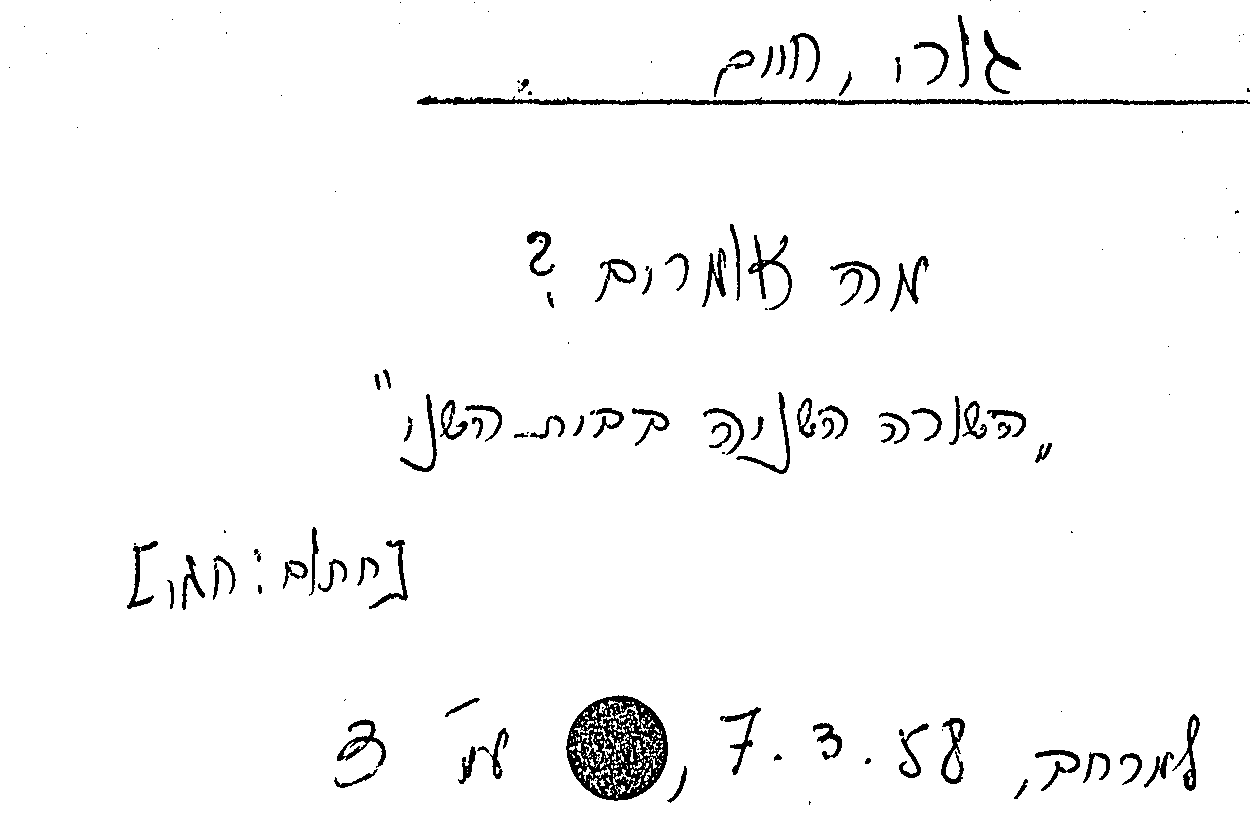 גורי, חיים
מה אומרים?
"השורה השניה בבית-השני"
[חתום: חגו]
למרחב, 7.3.58, עמ' 3